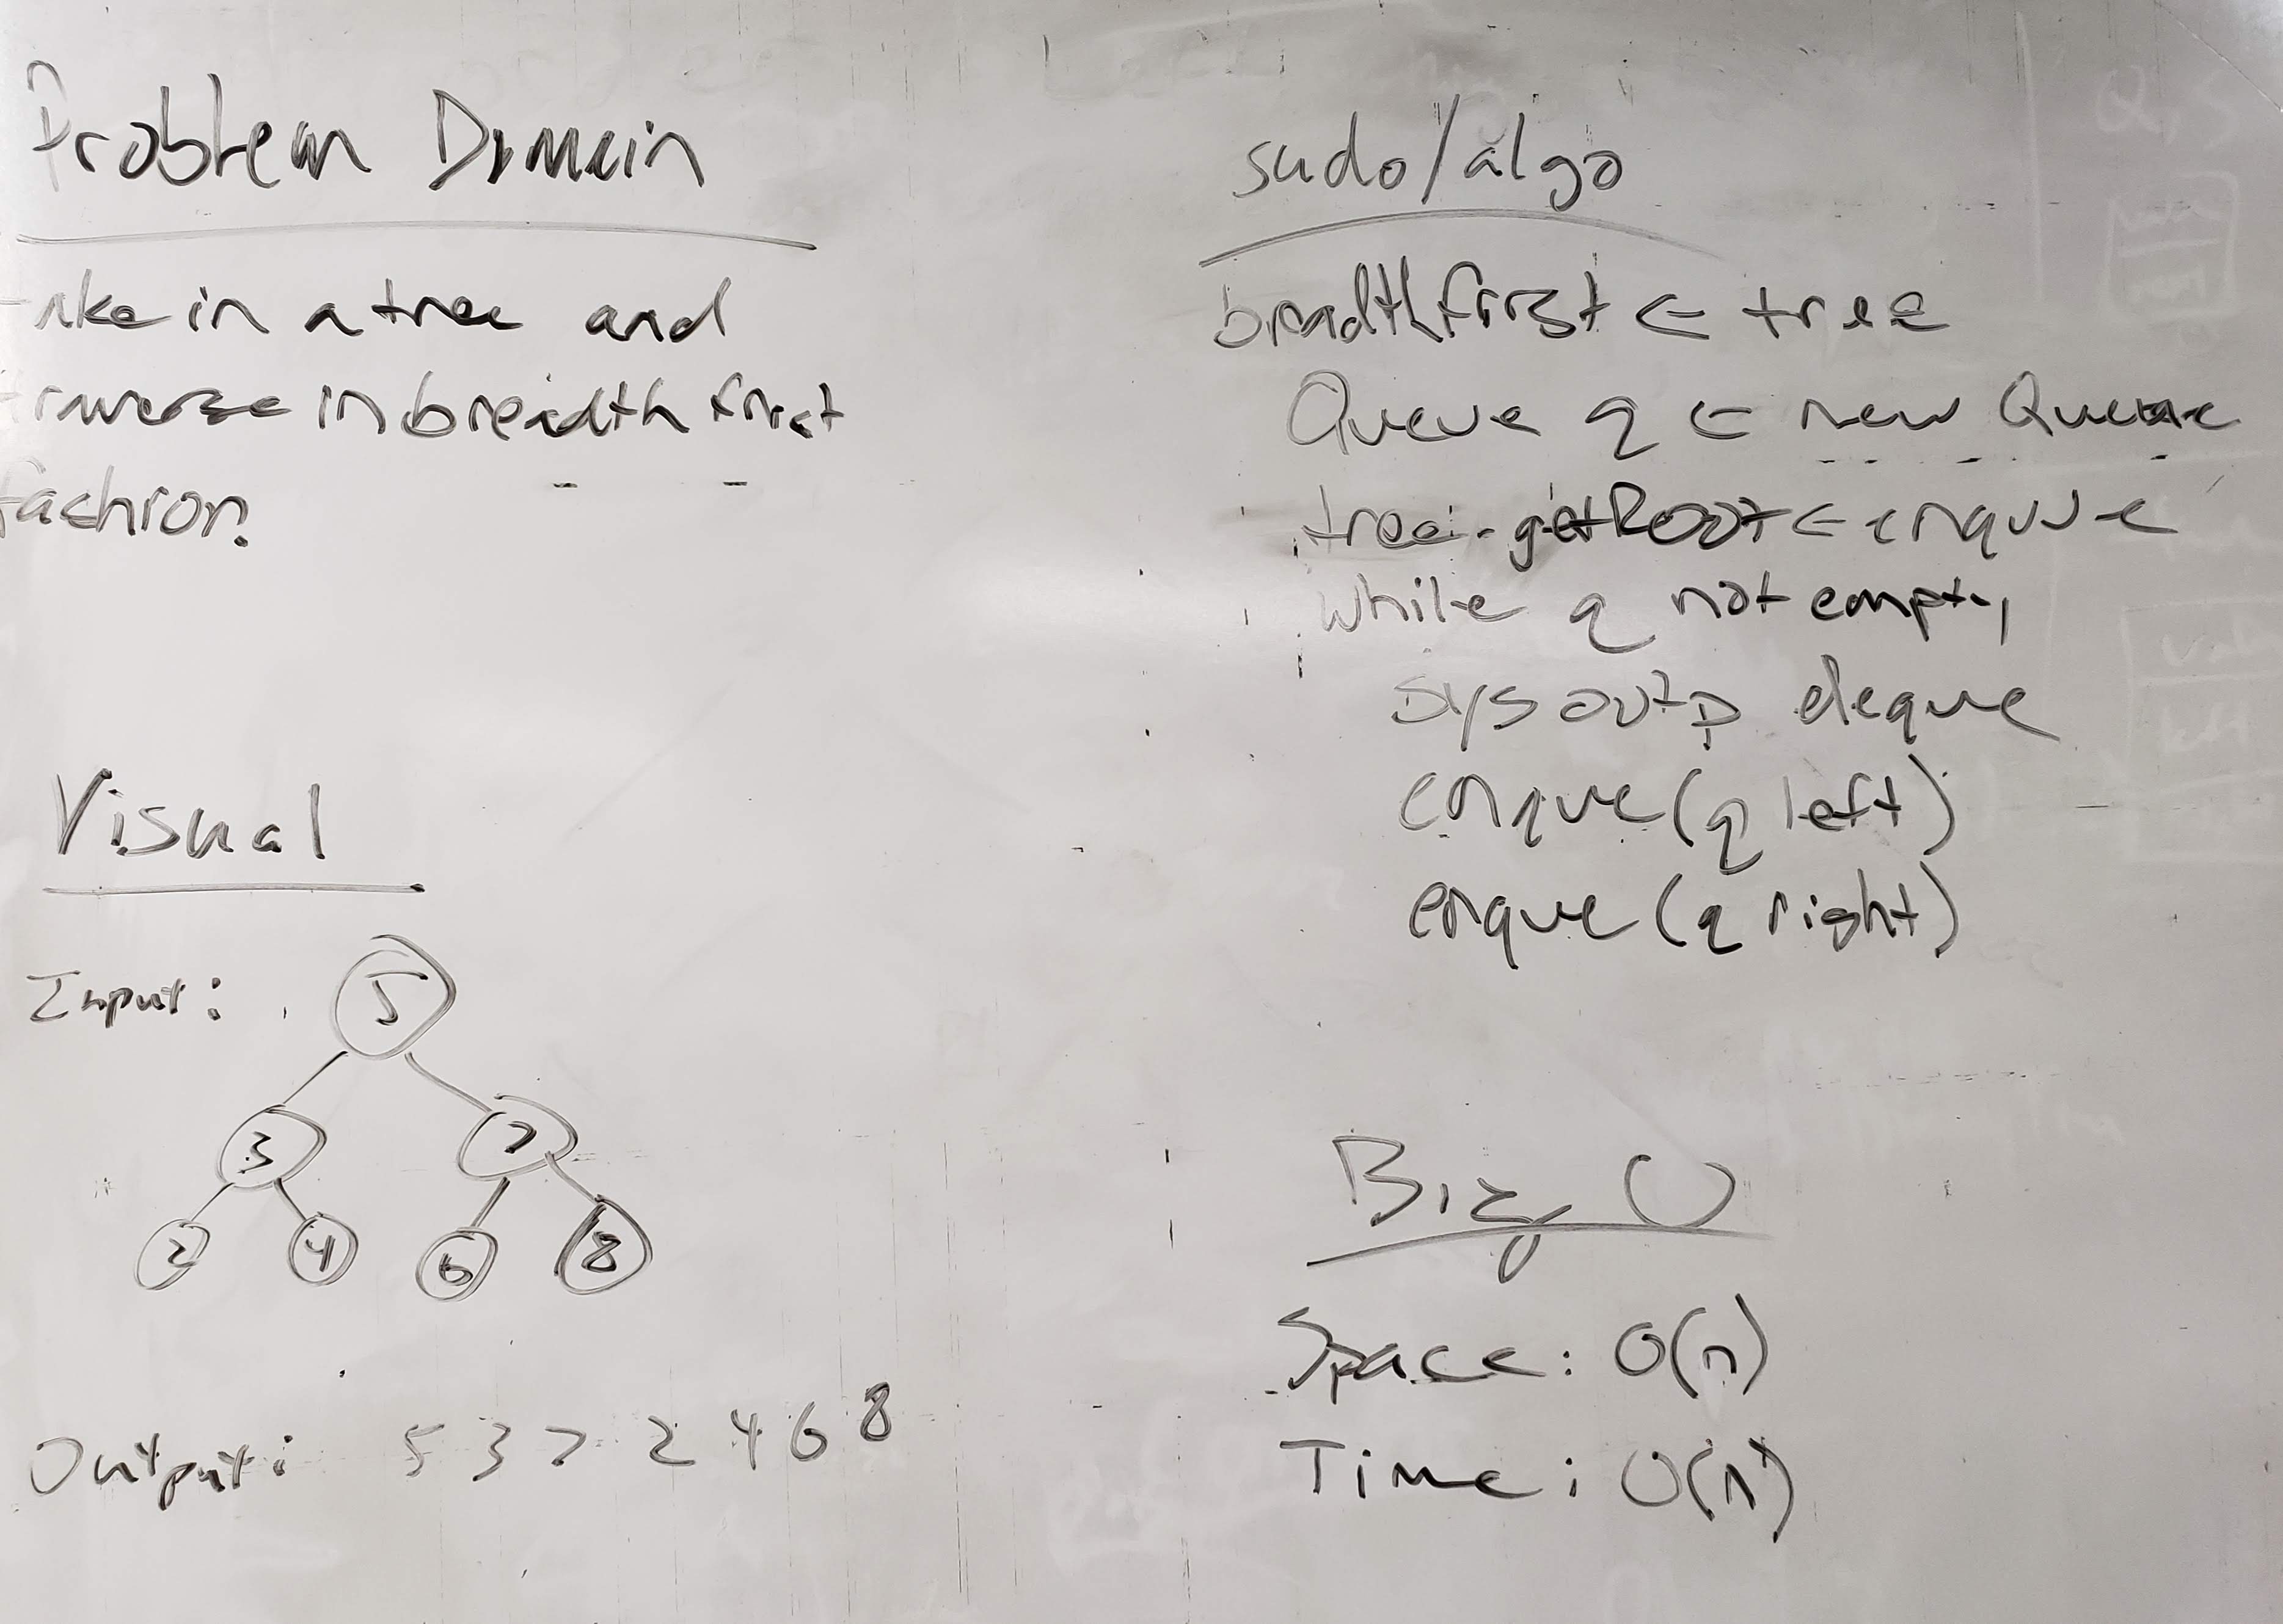 Problem Domain
take in a tree and
traverse in breadth first
fashion.
Visual
Input:
5
3 7
2 4 6 8
Output: 5 3 7 2 4 6 8
sudo/algo
breadthfirst ← tree
Queue q ← new Queue
tree.getRoot ← enqueue
while q not empty
sysout deque
enque(q left)
enque(q right)
Big O
Space: O(n)
Time: O(n)